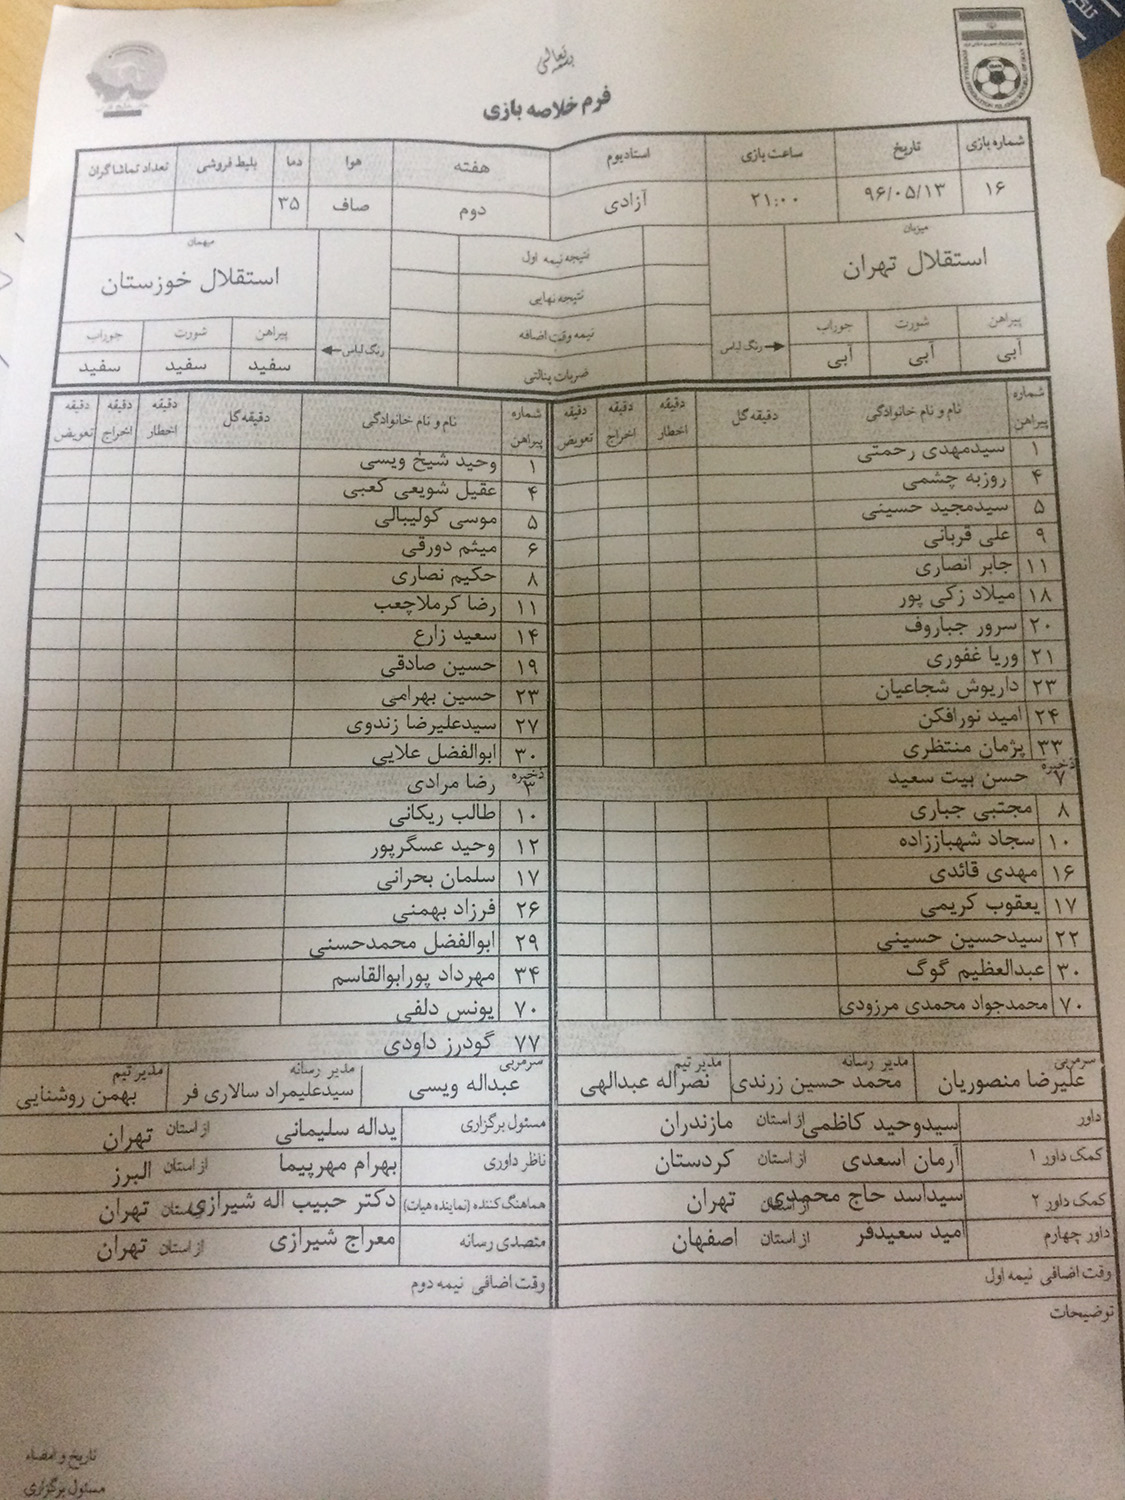 بسمه تعالی
فرم خلاصه بازی
شماره بازی تاریخ ساعت بازی استادیوم هفته هوا دما بلیط فروشی تعداد تماشاگران
۱۶ ۹۶/۰۵/۱۳ ۲۱:۰۰ آزادی دوم صاف ۳۵
میزبان نتیجه نیمه اول میهمان
استقلال تهران استقلال خوزستان
نتیجه نهایی
پیراهن شورت جوراب نیمه وقت اضافه پیراهن شورت جوراب
آبی آبی آبی رنگ لباس ضربات پنالتی رنگ لباس سفید سفید سفید
شماره پیراهن نام و نام خانوادگی دقیقه گل دقیقه اخطار دقیقه اخراج دقیقه تعویض شماره پیراهن نام و نام خانوادگی دقیقه گل دقیقه اخطار دقیقه اخراج دقیقه تعویض
۱ سیدمهدی رحمتی ۱ وحید شیخ ویسی
۴ روزبه چشمی ۴ عقیل شویعی کعبی
۵ سیدمجید حسینی ۵ موسی کولیبالی
۹ علی قربانی ۶ میثم دورقی
۱۱ جابر انصاری ۸ حکیم نصاری
۱۸ میلاد زکی پور ۱۱ رضا کرملاچعب
۲۰ سرور جباروف ۱۴ سعید زارع
۲۱ وریا غفوری ۱۹ حسین صادقی
۲۳ داریوش شجاعیان ۲۳ حسین بهرامی
۲۴ امید نورافکن ۲۷ سیدعلیرضا زندوی
۳۳ پژمان منتظری ۳۰ ابوالفضل علایی
ذخیره ۷ حسن بیت سعید ذخیره ۳ رضا مرادی
۸ مجتبی جباری ۱۰ طالب ریکانی
۱۰ سجاد شهباززاده ۱۲ وحید عسگرپور
۱۶ مهدی قائدی ۱۷ سلمان بحرانی
۱۷ یعقوب کریمی ۲۶ فرزاد بهمنی
۲۲ سیدحسین حسینی ۲۹ ابوالفضل محمدحسنی
۳۰ عبدالعظیم گوگ ۳۴ مهرداد پورابوالقاسم
۷۰ محمدجواد محمدی مرزودی ۷۰ یونس دلفی
۷۷ گودرز داودی
سرمربی مدیر رسانه مدیر تیم سرمربی مدیر رسانه مدیر تیم
علیرضا منصوریان محمد حسین زرندی نصراله عبدالهی عبداله ویسی سیدعلیمراد سالاری فر بهمن روشنایی
داور سیدوحید کاظمی از استان مازندران مسئول برگزاری یداله سلیمانی از استان تهران
کمک داور ۱ آرمان اسعدی از استان کردستان ناظر داوری بهرام مهرپیما البرز
کمک داور ۲ سیداسد حاج محمدی از استان تهران هماهنگ کننده (نماینده هیات) دکتر حبیب اله شیرازی از استان تهران
داور چهارم امید سعیدفر از استان اصفهان متصدی رسانه معراج شیرازی از استان تهران
وقت اضافی نیمه اول وقت اضافی نیمه دوم
توضیحات
تاریخ و امضاء
مسئول برگزاری